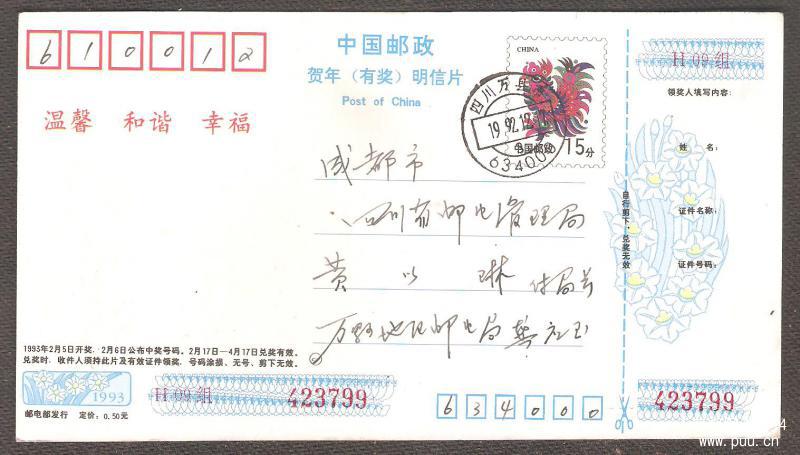 610012
中国邮政
贺年（有奖）明信片
Post of China
CHINA
中国邮政 15分
四川万县
1992.12
634000
H 09 组
领奖人填写内容:
温馨 和谐 幸福
姓 名:
证件名称:
证件号码:
自行剪下，兑奖无效
成都市
四川省邮电管理局
黄 以 琳 付局长
万县地区邮电局 龚
1993年2月5日开奖，2月6日公布中奖号码。2月17日—4月17日兑奖有效。
兑奖时，收件人须持此片及有效证件领奖，号码涂损、无号、剪下无效。
1993
H 09 组
423799
邮电部发行 定价: 0.50元
634000
423799
www.puu.cn